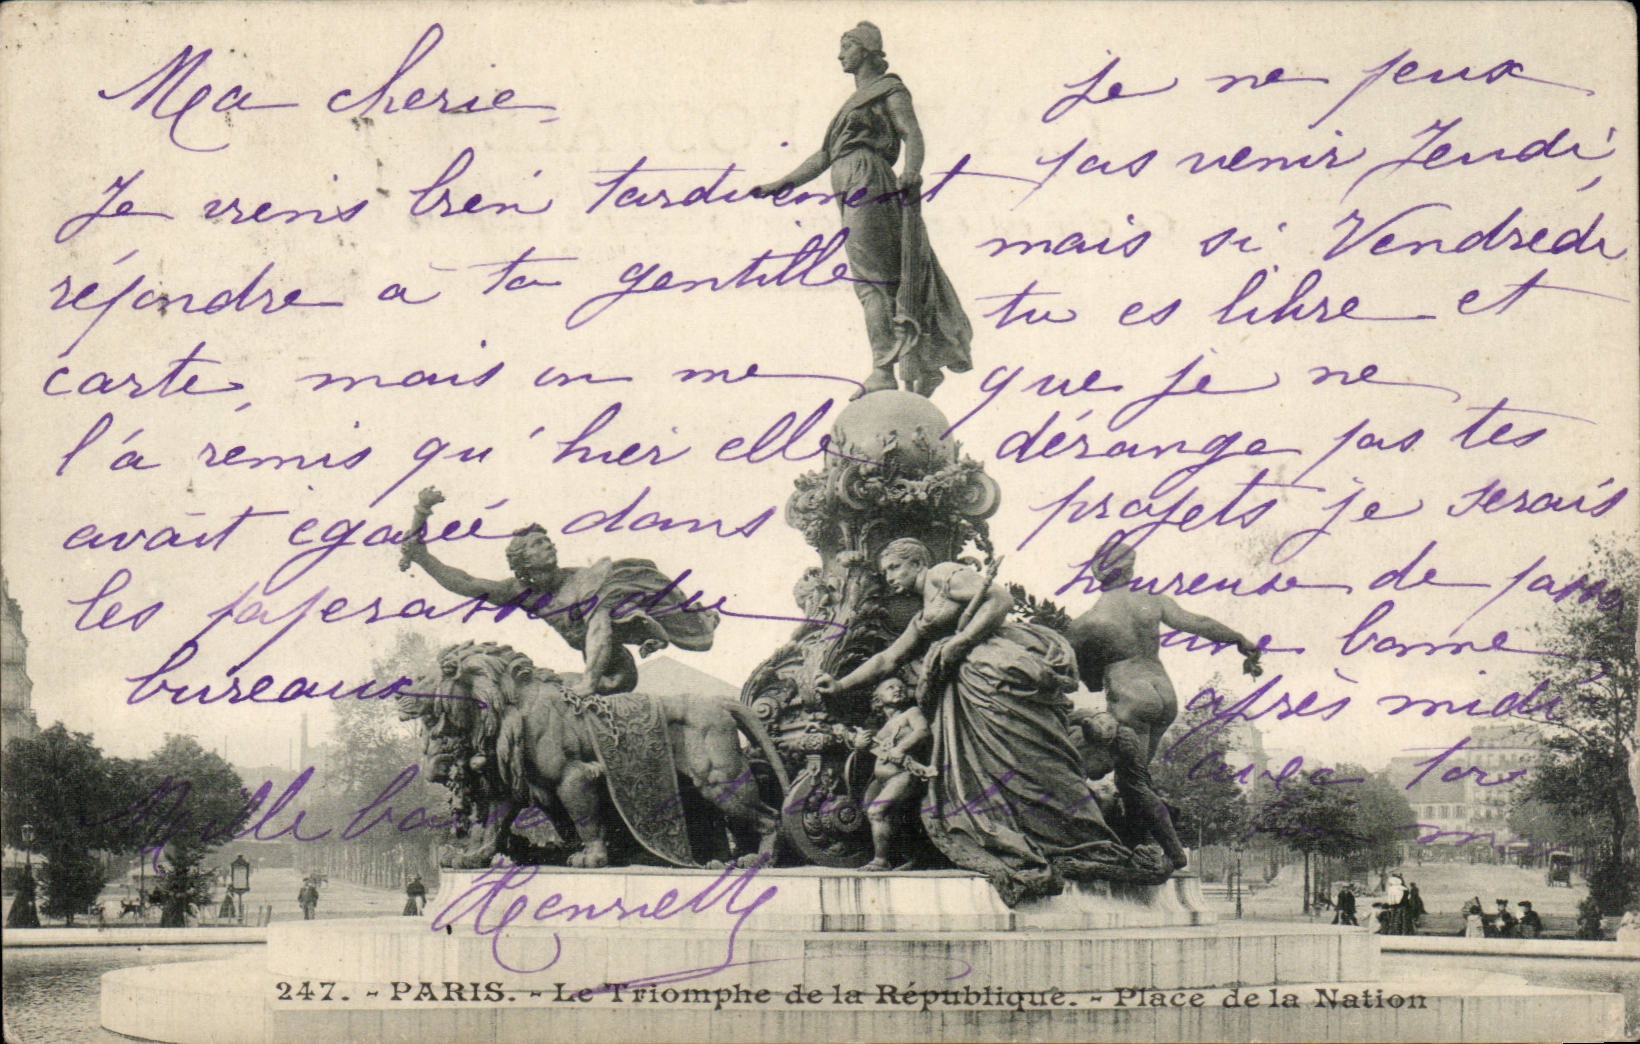 Ma cherie,
Je viens bien tardivement
répondre à ta gentille
carte, mais on me
l'a remis qu'hier elle
avait égarée dans
les paperasses du
bureaux
je ne peux
pas venir Jeudi,
mais si Vendredi
tu es libre et
que je ne
dérange pas tes
projets je serais
heureuse de passer
une bonne
après midi
avec toi
Mille baisers
Henriette
247. - PARIS. - Le Triomphe de la République. - Place de la Nation